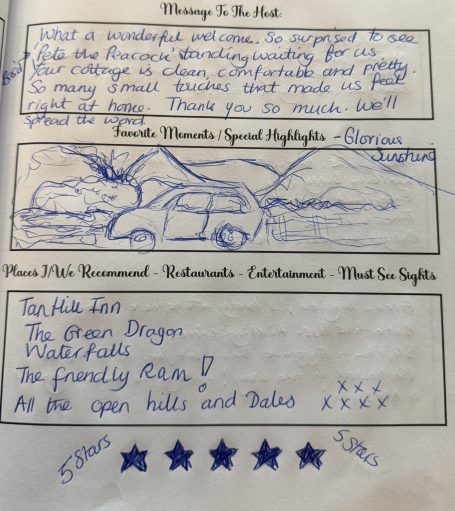 Message To The Host:
What a wonderful welcome. So surprised to see
'Pete the Peacock' standing waiting for us
Your cottage is clean, comfortable and pretty.
So many small touches that made us feel
right at home. Thank you so much. We'll
spread the word
Favorite Moments / Special Highlights - Glorious
Sunshine
Places I/We Recommend - Restaurants - Entertainment - Must See Sights
Tan Hill Inn
The Green Dragon
Waterfalls
The friendly Ram!
x x x
All the open hills and Dales x x x x
5 Stars
5 Stars